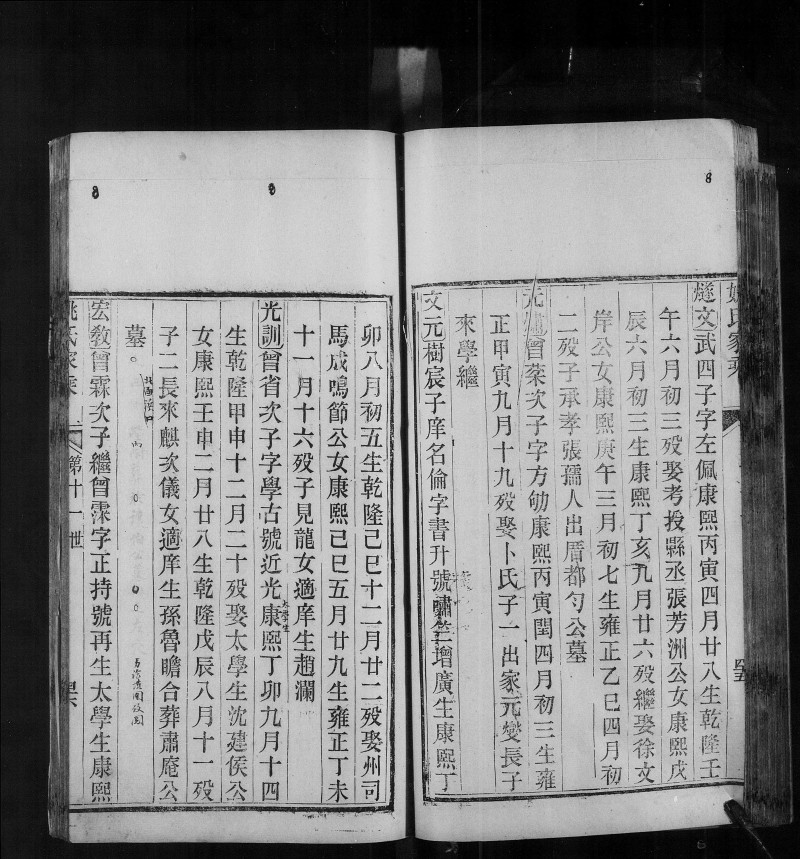 8
燧文武四子字左佩康熙丙寅四月廿八生乾隆壬
午六月初三殁娶考授縣丞張芳洲公女康熙戊
辰六月初三生康熙丁亥九月廿六殁繼娶徐文
岸公女康熙庚午三月初七生雍正乙巳四月初
二殁子承孝張孺人出厝都勻公墓
曾棻次子字方劬康熙丙寅閏四月初三生雍
正甲寅九月十九殁娶卜氏子一出家元燮長子
來學繼
文元樹宸子庠名倫字書升號嘯竺增廣生康熙丁
8
8
卯八月初五生乾隆己巳十二月廿二殁娶州司
馬成鳴節公女康熙己巳五月廿九生雍正丁未
十一月十六殁子見龍女適庠生趙瀾
太學生
光訓曾省次子字學古號近光康熙丁卯九月十四
生乾隆甲申十二月二十殁娶太學生沈建侯公
女康熙壬申二月廿八生乾隆戊辰八月十一殁
子二長來麒次儀女適庠生孫魯瞻合葬肅庵公
墓
宏教曾霖次子繼曾霂字正持號再生太學生康熙
姚氏家乘
第十一世